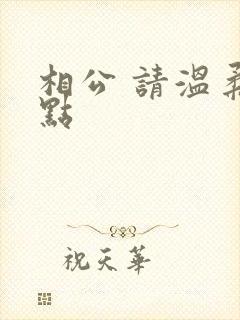 相公 請溫柔
點
祝天華